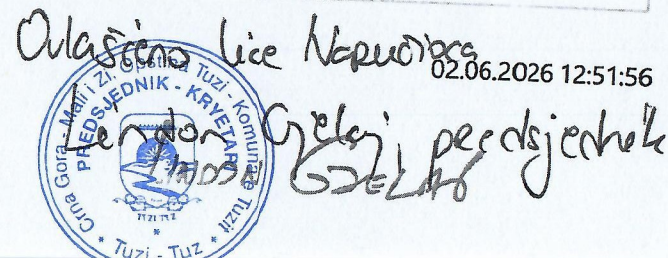 Ovlašćeno lice Naručioca
02.06.2026 12:51:56
Lindon Gjelaj, predsjednik
LINDON GJELAJ
Crna Gora - Mali i Zi, Opština Tuzi - Komuna e Tuzit
PREDSJEDNIK - KRYETARI
TUZI TUZ
* Tuzi - Tuz *